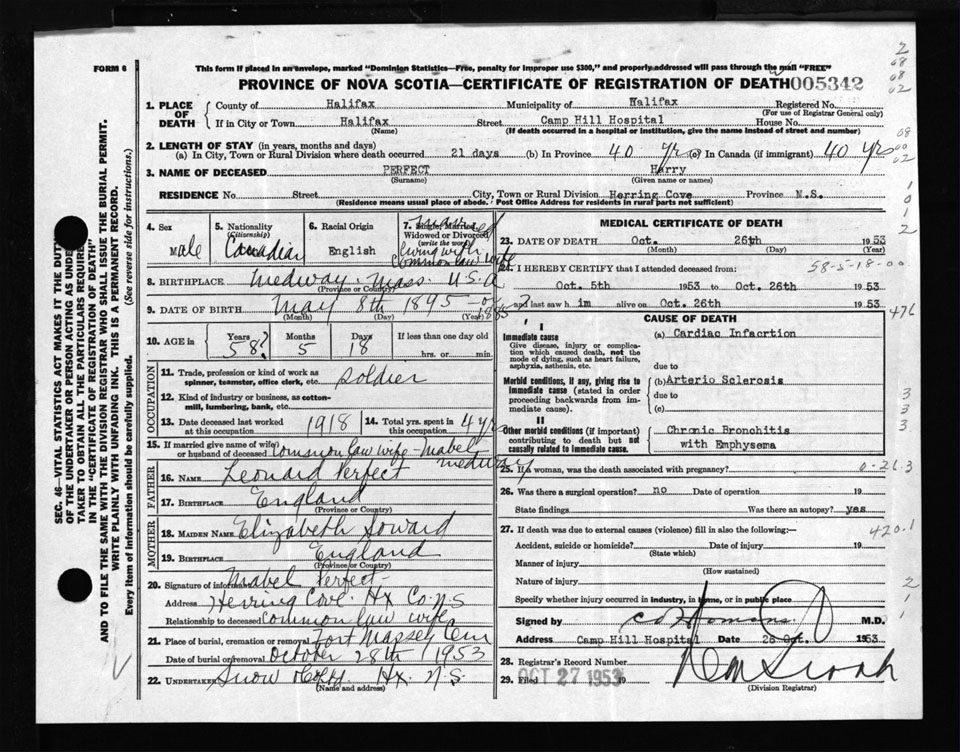 FORM 6
This form if placed in an envelope, marked "Dominion Statistics—Free, penalty for improper use $300," and properly addressed will pass through the mail "FREE"
PROVINCE OF NOVA SCOTIA—CERTIFICATE OF REGISTRATION OF DEATH 005342
1. PLACE OF DEATH
County of Halifax Municipality of Halifax Registered No.
(For use of Registrar General only)
If in City or Town Halifax Street Camp Hill Hospital House No.
(Name) (If death occurred in a hospital or institution, give the name instead of street and number)
2. LENGTH OF STAY (in years, months and days)
(a) In City, Town or Rural Division where death occurred 21 days (b) In Province 40 yr (c) In Canada (if immigrant) 40 yrs
3. NAME OF DECEASED PERFECT Harry
(Surname) (Given name or names)
RESIDENCE No. Street City, Town or Rural Division Herring Cove Province N.S.
(Residence means usual place of abode. Post Office Address for residents in rural parts not sufficient)
4. Sex Male
5. Nationality (Citizenship) Canadian
6. Racial Origin English
7. Single, Married, Widowed or Divorced (write the word)
living with common law wife
8. BIRTHPLACE Medway, Mass. U.S.A
(Province or Country)
9. DATE OF BIRTH May 8th 1895 - or 1885 ?
(Month) (Day) (Year)
10. AGE in Years 58? Months 5 Days 18 If less than one day old hrs. or min.
OCCUPATION
11. Trade, profession or kind of work as spinner, teamster, office clerk, etc. Soldier
12. Kind of industry or business, as cotton-mill, lumbering, bank, etc.
13. Date deceased last worked at this occupation 1918
14. Total yrs. spent in this occupation 4 yrs
15. If married give name of wife or husband of deceased Common law wife - Mabel Medway
FATHER
16. NAME Leonard Perfect
17. BIRTHPLACE England
(Province or Country)
MOTHER
18. MAIDEN NAME Elizabeth Soward
19. BIRTHPLACE England
(Province or Country)
20. Signature of informant Mabel Perfect
Address Herring Cove. Hx Co. N.S
Relationship to deceased Common law wife
21. Place of burial, cremation or removal Fort Massey Cem
Date of burial or removal October 28th 1953
22. UNDERTAKER Snow Hx. N.S.
(Name and address)
MEDICAL CERTIFICATE OF DEATH
23. DATE OF DEATH Oct. 26th 1953
(Month) (Day) (Year)
58-5-18-00
24. I HEREBY CERTIFY that I attended deceased from:
Oct. 5th 1953 to Oct. 26th 1953
and last saw him alive on Oct. 26th 1953
CAUSE OF DEATH
I
Immediate cause
Give disease, injury or complication which caused death, not the mode of dying, such as heart failure, asphyxia, asthenia, etc.
(a) Cardiac Infacrtion
due to
Morbid conditions, if any, giving rise to immediate cause (stated in order proceeding backwards from immediate cause).
(b) Arterio Sclerosis
due to
(c)
II
Other morbid conditions (if important) contributing to death but not causally related to immediate cause.
Chronic Bronchitis
with Emphysema
25. If a woman, was the death associated with pregnancy?
26. Was there a surgical operation? no Date of operation 19
State findings Was there an autopsy? yes
27. If death was due to external causes (violence) fill in also the following:—
Accident, suicide or homicide? Date of injury 19
(State which)
Manner of injury
(How sustained)
Nature of injury
Specify whether injury occurred in industry, in home, or in public place
Signed by M.D.
Address Camp Hill Hospital Date 26 Oct. 1953
28. Registrar's Record Number
29. Filed OCT 27 1953 19
(Division Registrar)
476
420.1
SEC. 46—VITAL STATISTICS ACT MAKES IT THE DUTY
OF THE UNDERTAKER OR PERSON ACTING AS UNDER-
TAKER TO OBTAIN ALL THE PARTICULARS REQUIRED
IN THE "CERTIFICATE OF REGISTRATION OF DEATH"
AND TO FILE THE SAME WITH THE DIVISION REGISTRAR WHO SHALL ISSUE THE BURIAL PERMIT.
WRITE PLAINLY WITH UNFADING INK. THIS IS A PERMANENT RECORD.
Every item of information should be carefully supplied. (See reverse side for instructions.)